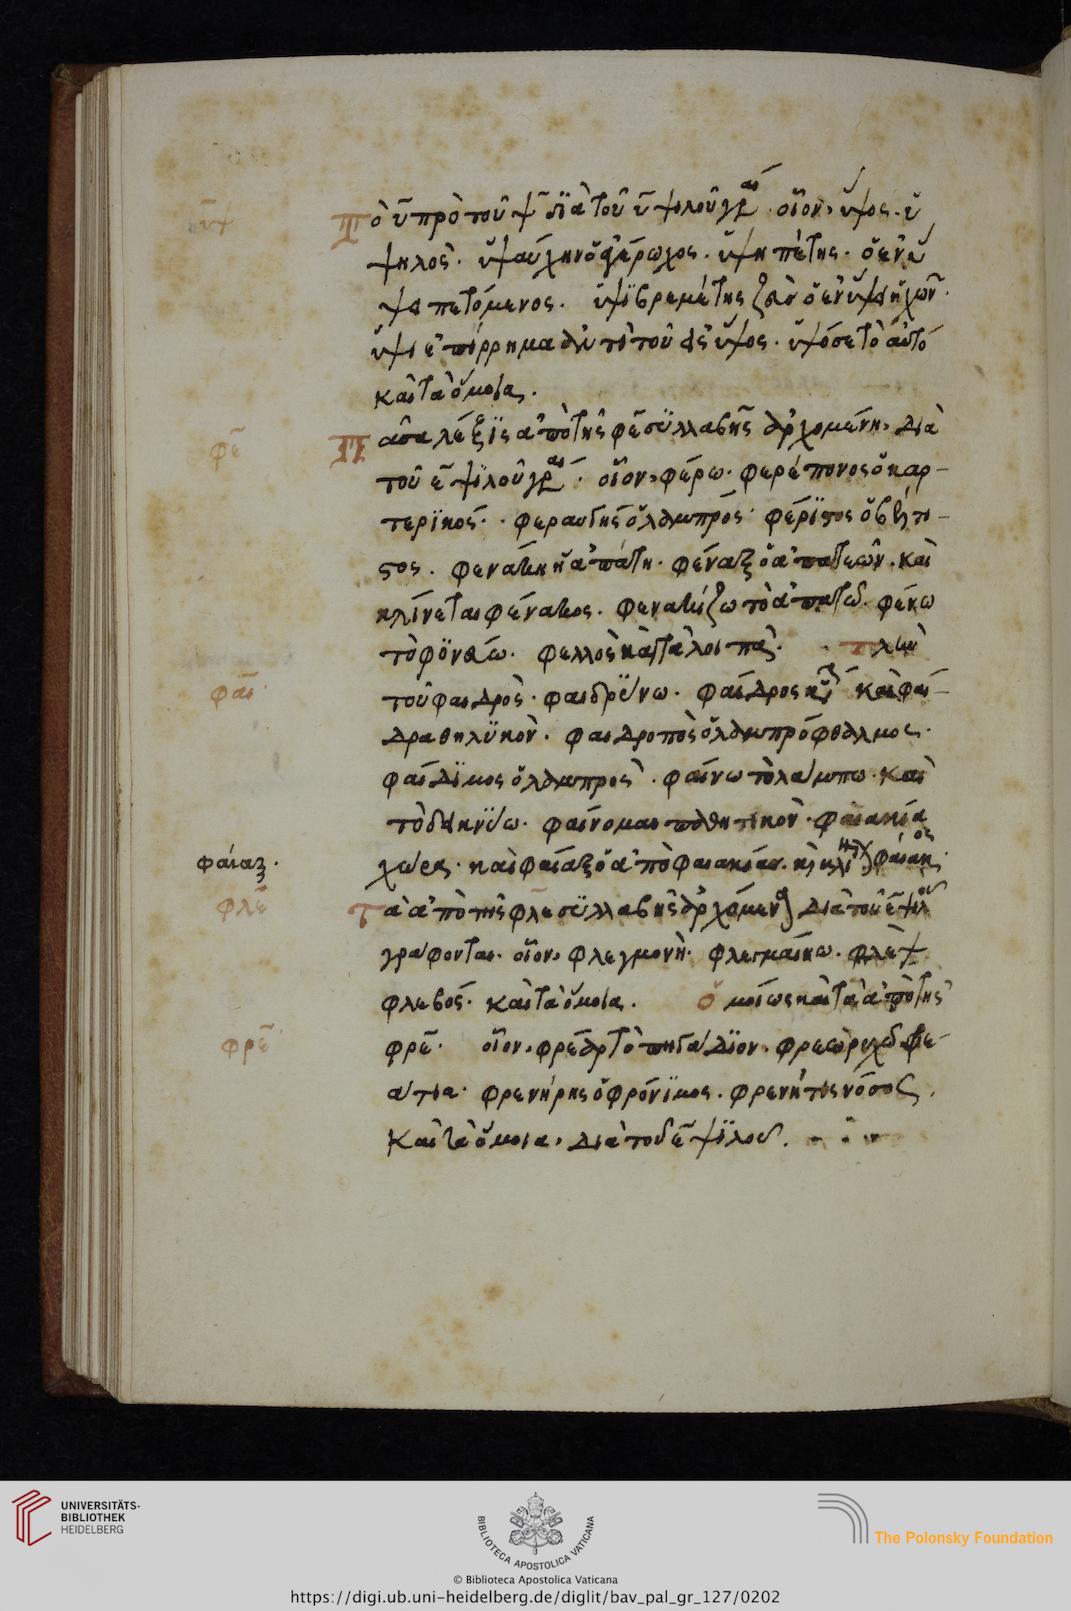 υψ
Τὸ υ πρὸ τοῦ ψ διὰ τοῦ υ ψιλοῦ γρ οἷον, ὕψος. ὑ
ψηλός. ὑψαύχην ὁ ὑπέρωχος. ὑψηπέτης. ὁ ἐν ὕ
ψει πετόμενος. ὑψιβρεμέτης ζεὺς ὁ ἐν ὕψει ἠχῶν.
ὕψι ἐπίρρημα ἀντὶ τοῦ εἰς ὕψος. ὑψόσε τὸ αὐτό
καὶ τὰ ὅμοια.
φε
Πᾶσα λέξις ἀπὸ τῆς φε συλλαβῆς ἀρχομένη, διὰ
τοῦ ε ψιλοῦ γρ. οἷον, φέρω. φερέπονος ὁ καρ-
τερικός. φεραυγὴς ὁ λαμπρός. φέριστος ὁ βέλτι-
στος. φενάκη ἡ ἀπάτη. φέναξ ὁ ἀπατεών. καὶ
κλίνεται φένακος. φενακίζω τὸ ἀπατῶ. φένω
τὸ φονεύω. φελλὸς καὶ τὰ λοιπά. πλὴν
φαι
τοῦ φαιδρός. φαιδρύνω. φαίδρος καὶ φαί-
δρα θηλυκόν. φαιδρωπὸς ὁ λαμπρόφθαλμος.
φαίδιμος ὁ λαμπρός. φαίνω τὸ λάμπω. καὶ
τὸ δεικνύω. φαίνομαι παθητικόν. φαιακία
φαίαξ.
χώρα. καὶ φαίαξ ὁ ἀπὸ φαιακίας. φαίακος
φλε
Τὰ ἀπὸ τῆς φλε συλλαβῆς ἀρχόμενα διὰ τοῦ ε ψιλοῦ
γράφονται. οἷον, φλεγμονή. φλεγμαίνω. φλὲψ
φλεβός. καὶ τὰ ὅμοια. Ὁμοίως καὶ τὰ ἀπὸ τῆς
φρε
φρε. οἷον, φρέαρ τὸ πηγάδιον. φρεωρυχῶ φρέ-
ατα. φρενήρης ὁ φρόνιμος. φρενῖτις νόσος.
καὶ τὰ ὅμοια, διὰ τοῦ ε ψιλοῦ.
UNIVERSITÄTS-
BIBLIOTHEK
HEIDELBERG
BIBLIOTECA APOSTOLICA VATICANA
The Polonsky Foundation
© Biblioteca Apostolica Vaticana
https://digi.ub.uni-heidelberg.de/diglit/bav_pal_gr_127/0202